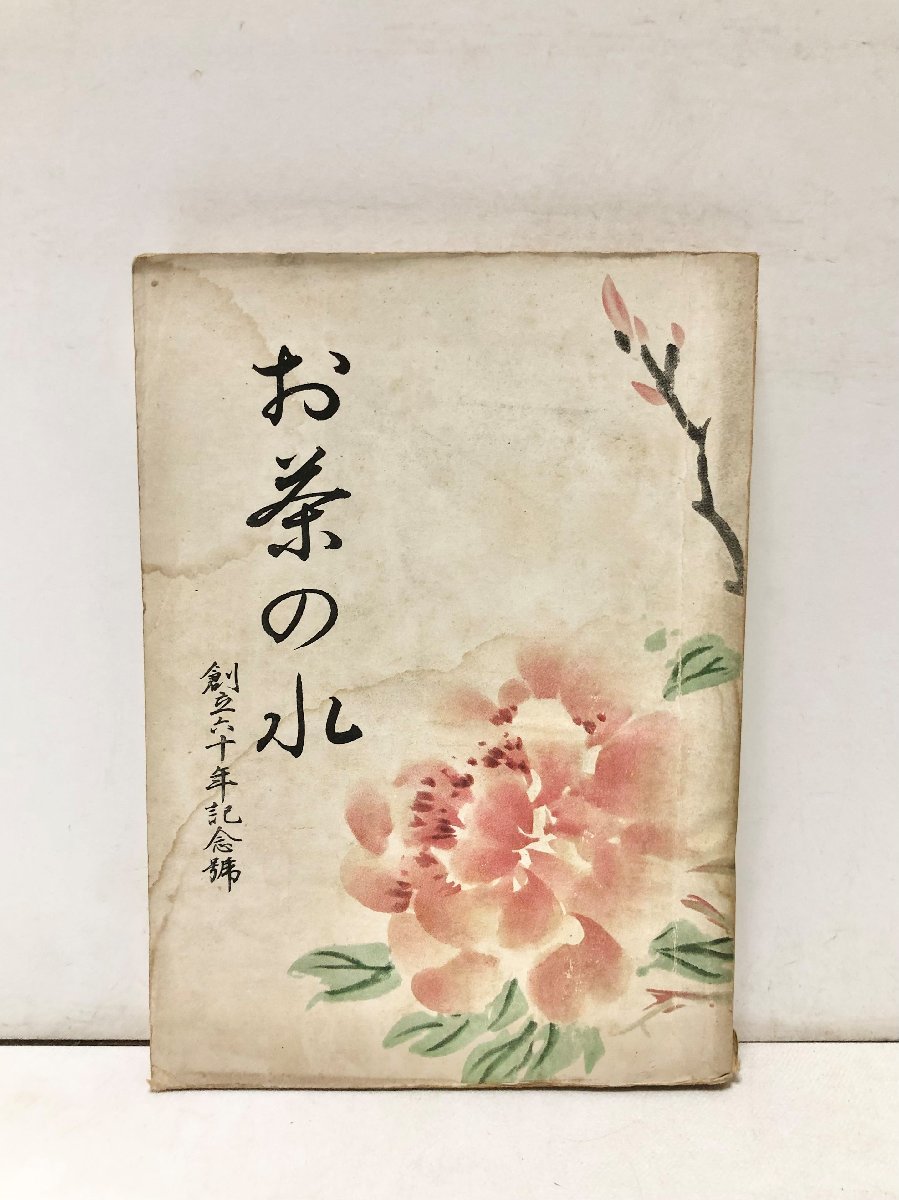 お茶の水
創立六十年記念號